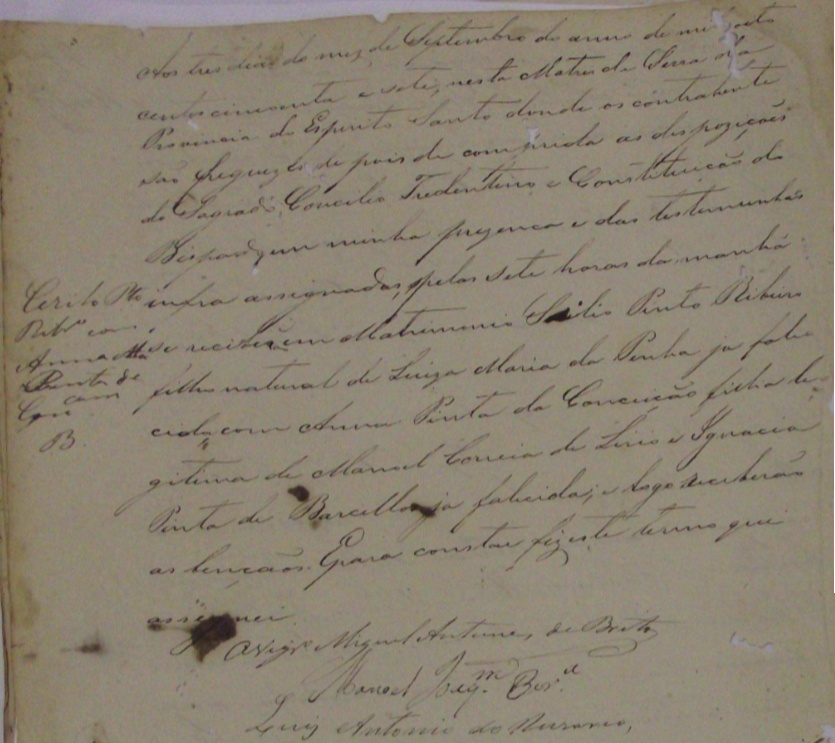 Aos tres dias do mez de Septembro do anno de mil oito
centos cincoenta e sete, nesta Matris da Serra da
Provincia do Espirito Santo donde os contrahente
são freguezes de pois de comprida as despozições
do Sagrado Concilio Tredentino e Constituicão do
Bispado, em minha prezenca e das testemunhas
infra assignadas, pelas sete horas da manhã
se receberão em Matrimonio Pinto Ribeiro
filho natural de Luiza Maria da Penha ja fale
cida, com Anna Pinta da Conceicão, filha le-
gitima de Manoel Correia de Lirio e Ignacia
Pinta de Barcellos ja falecida; e logo receberão
as bençãos. E para constar fiz este termo que
assignei
O Vigrº Miguel Antunes de Brito
Manoel Joaqᵐ
Luis Antonio do Rozario,
Pto
Ribrº com
Anna Ma
Pinta de
Con cam
B.